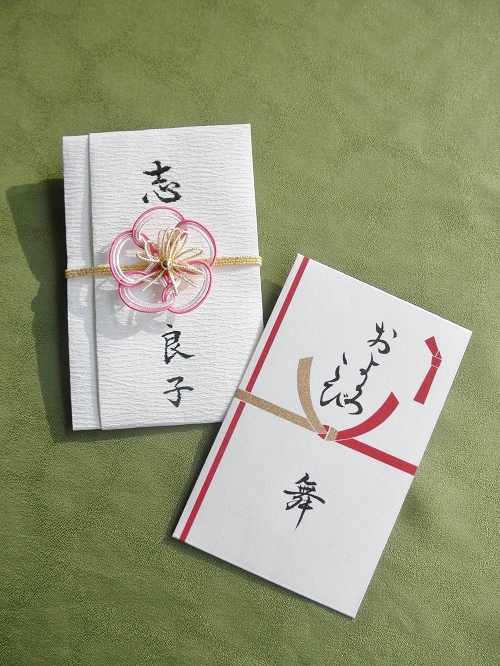 志
良子
およろこび
舞